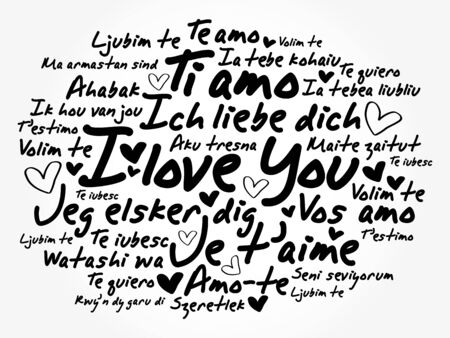 Ljubim te Te amo Volim te
Ma armastan sind Ia tebe kohaiu
Ti amo Te quiero
Ahabak Ia tebea liubliu
Ik hou van jou Ich liebe dich
T'estimo Aku tresna Maite zaitut
Volim te I love You Te iubesc
Te iubesc Volim te
Jeg elsker dig Vos amo
Ljubim te Te iubesc Je t'aime T'estimo
Watashi wa
Te quiero Amo-te Seni seviyorum
Rwy'n dy garu di Szeretlek Ljubim te